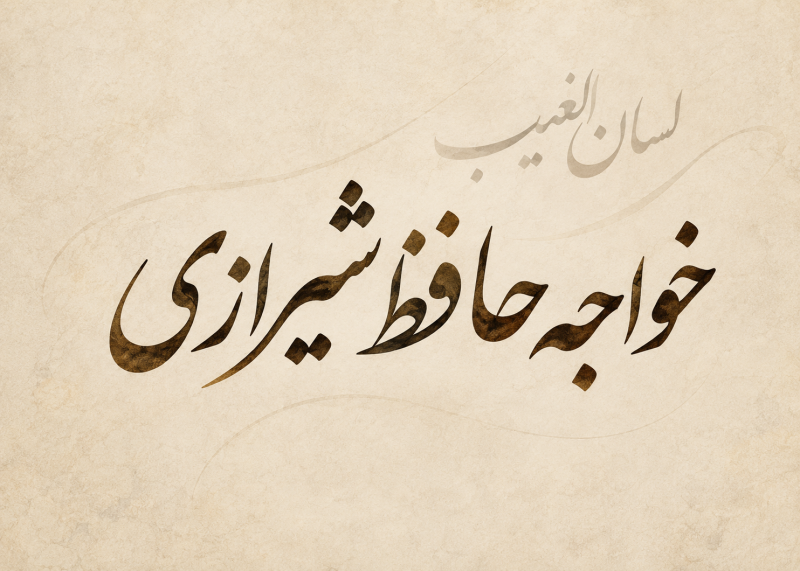 لسان الغیب
خواجه حافظ شیرازی